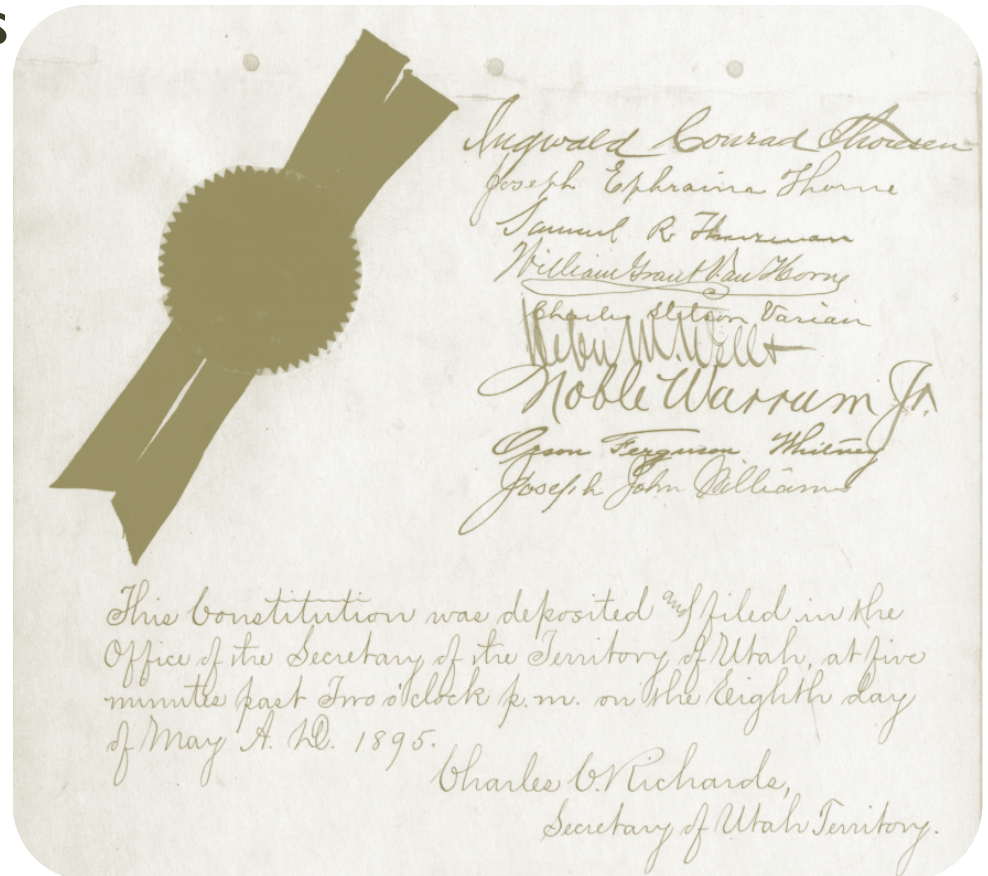 s
Ingwald Conrad Thoresen
Joseph Ephraim Thorne
Samuel R. Thurman
William Grant Van Horne
Charles Stetson Varian
Heber M. Wells
Noble Warrum Jr.
Orson Ferguson Whitney
Joseph John Williams
This Constitution was deposited and filed in the
Office of the Secretary of the Territory of Utah, at five
minutes past Two o'clock p.m. on the Eighth day
of May A. D. 1895.
Charles C. Richards,
Secretary of Utah Territory.